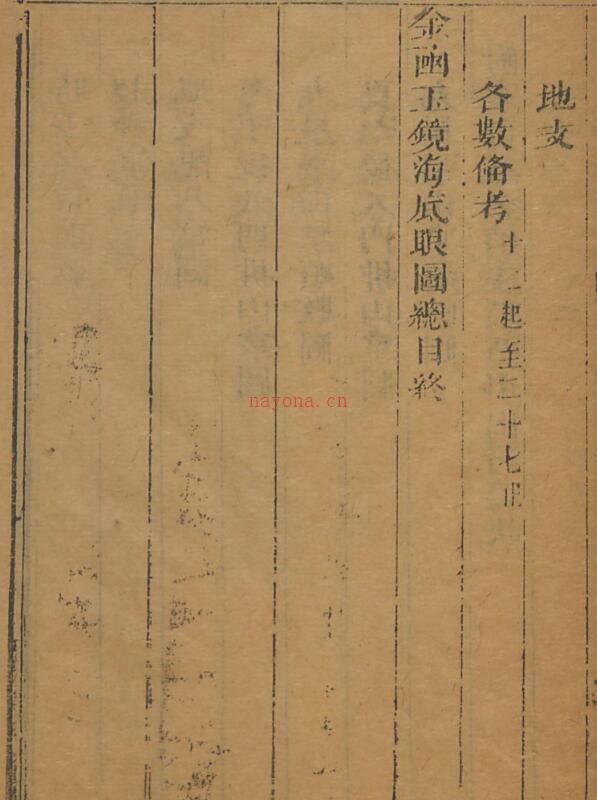 地支
各數俻考 十一起至二十七止
金函玉鏡海底眼圖總目終
nayona.cn